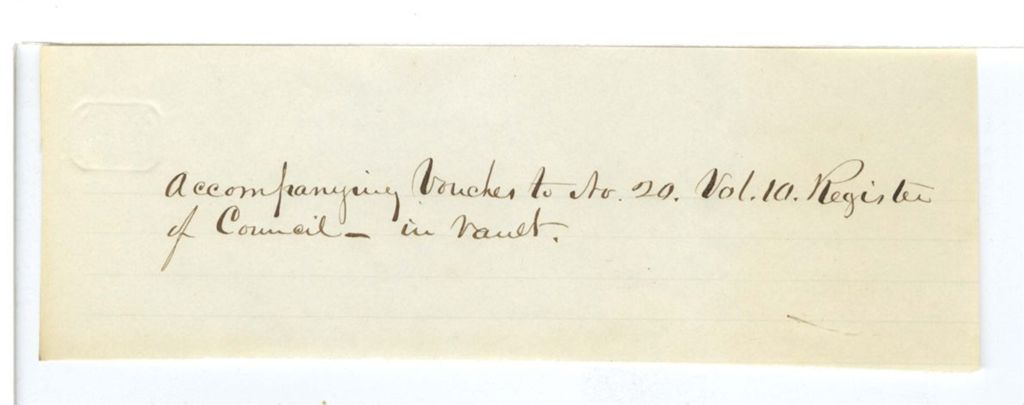 Accompanying Voucher to No. 20. Vol. 10. Register
of Council – in Vault.